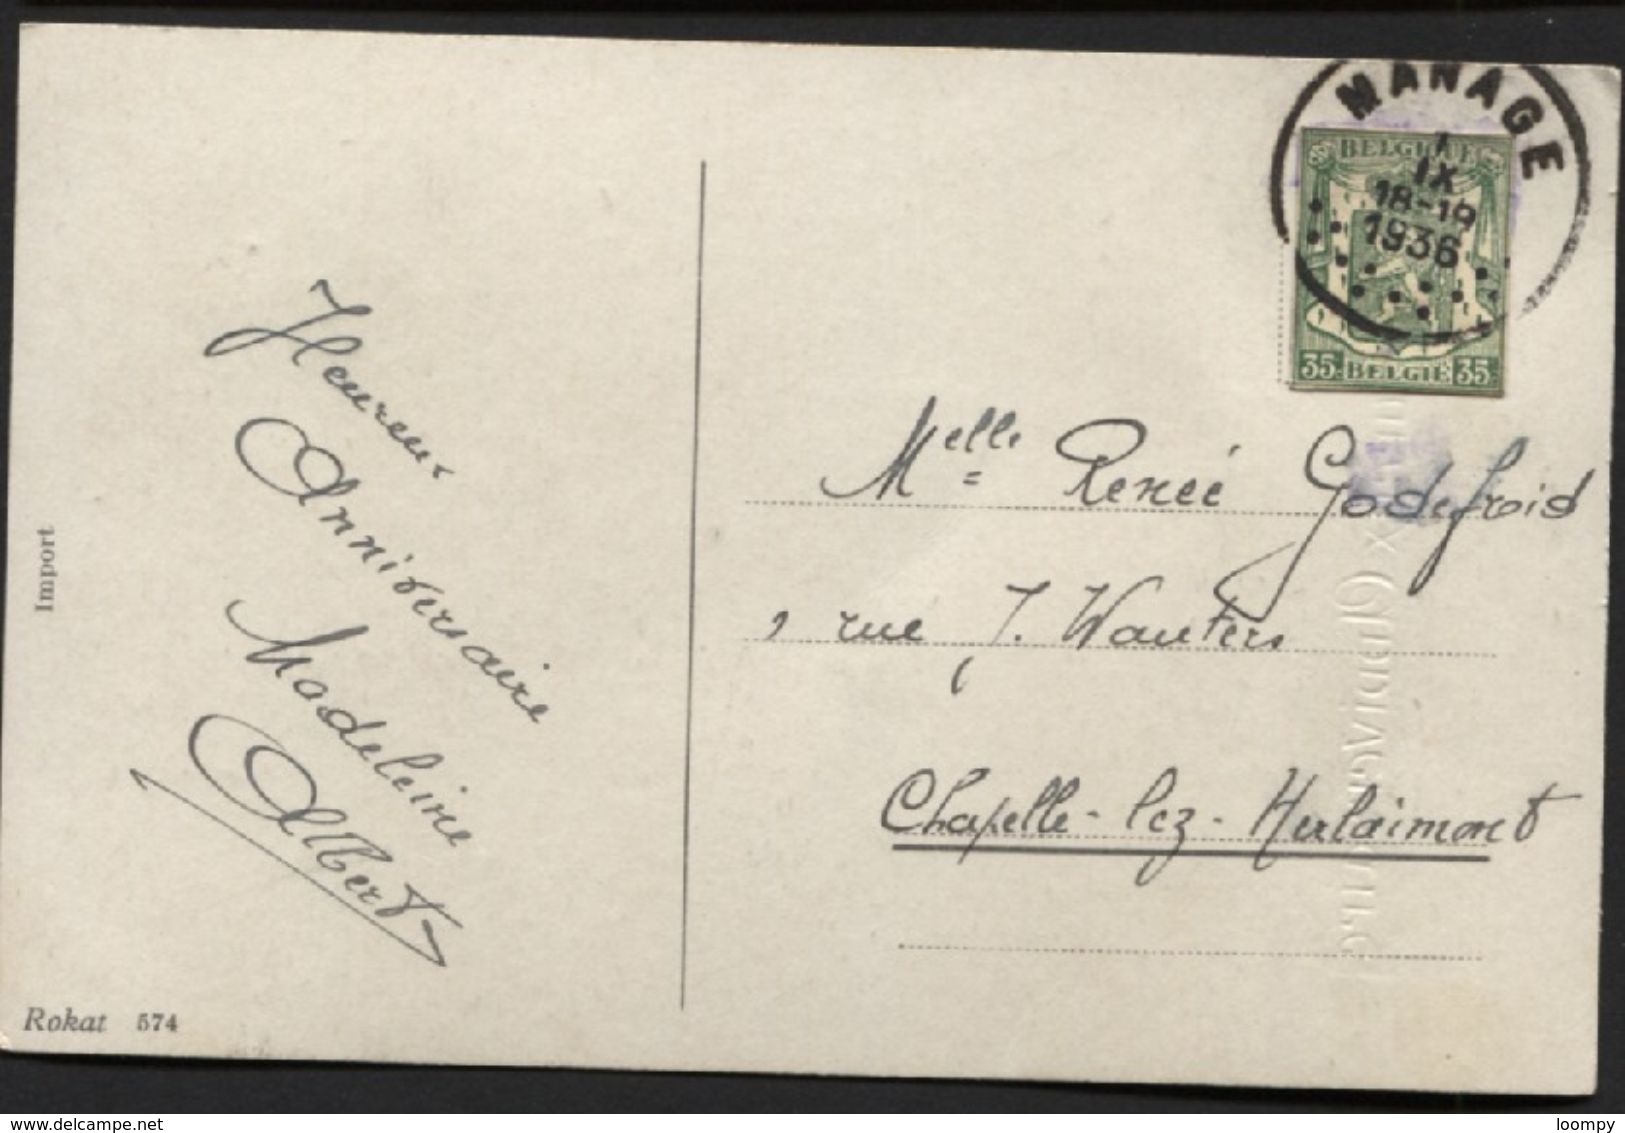 MANAGE
1
IX
18-19
1936
BELGIQUE
35 BELGIË 35
Heureux
Anniversaire
Madeleine
Albert
Melle Renée Godefroid
, rue J. Wauters
Chapelle-lez-Herlaimont
Import
Rokat 574
delcampe.net
loompy